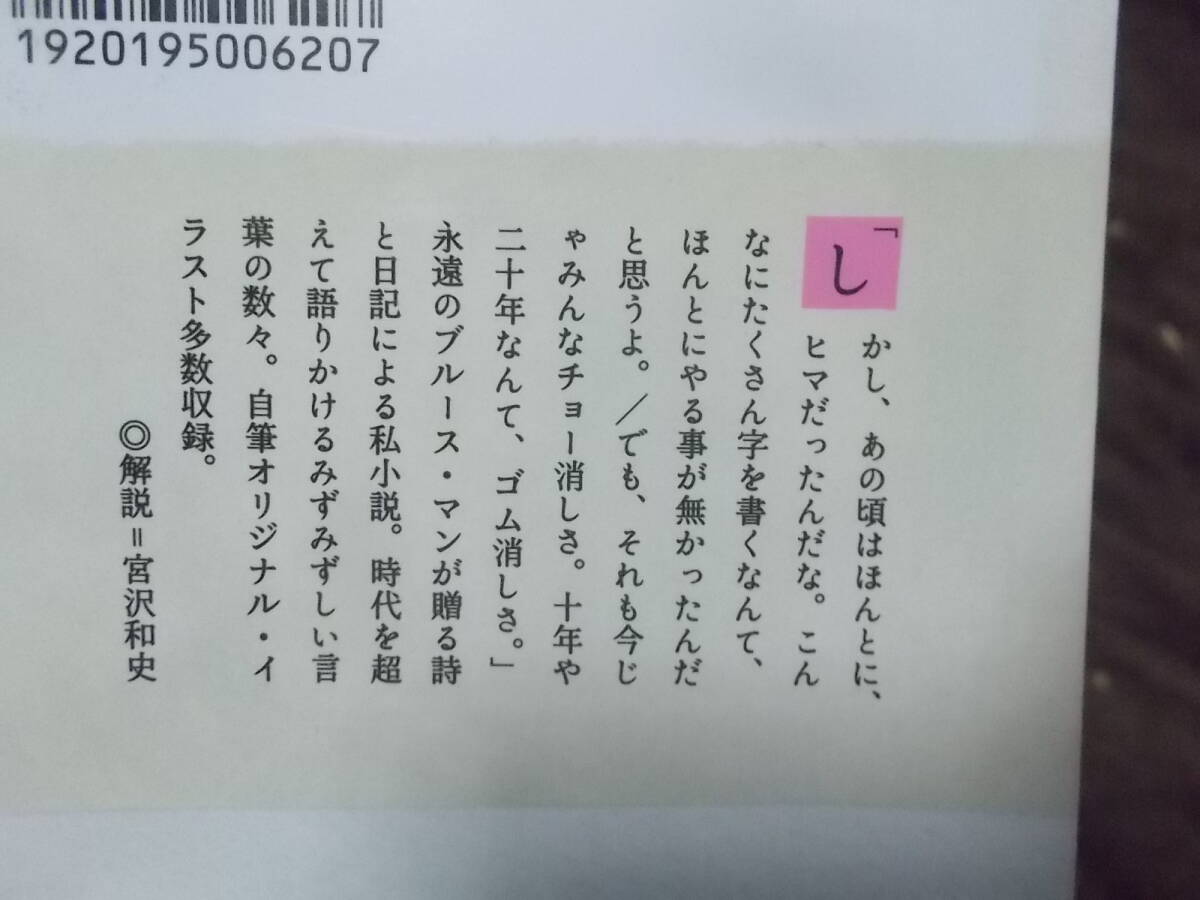 1920195006207
「し
かし、あの頃はほんとに、
ヒマだったんだな。こん
なにたくさん字を書くなんて、
ほんとにやる事が無かったんだ
と思うよ。／でも、それも今じ
ゃみんなチョー消しさ。十年や
二十年なんて、ゴム消しさ。」
永遠のブルース・マンが贈る詩
と日記による私小説。時代を超
えて語りかけるみずみずしい言
葉の数々。自筆オリジナル・イ
ラスト多数収録。
◎解説＝宮沢和史